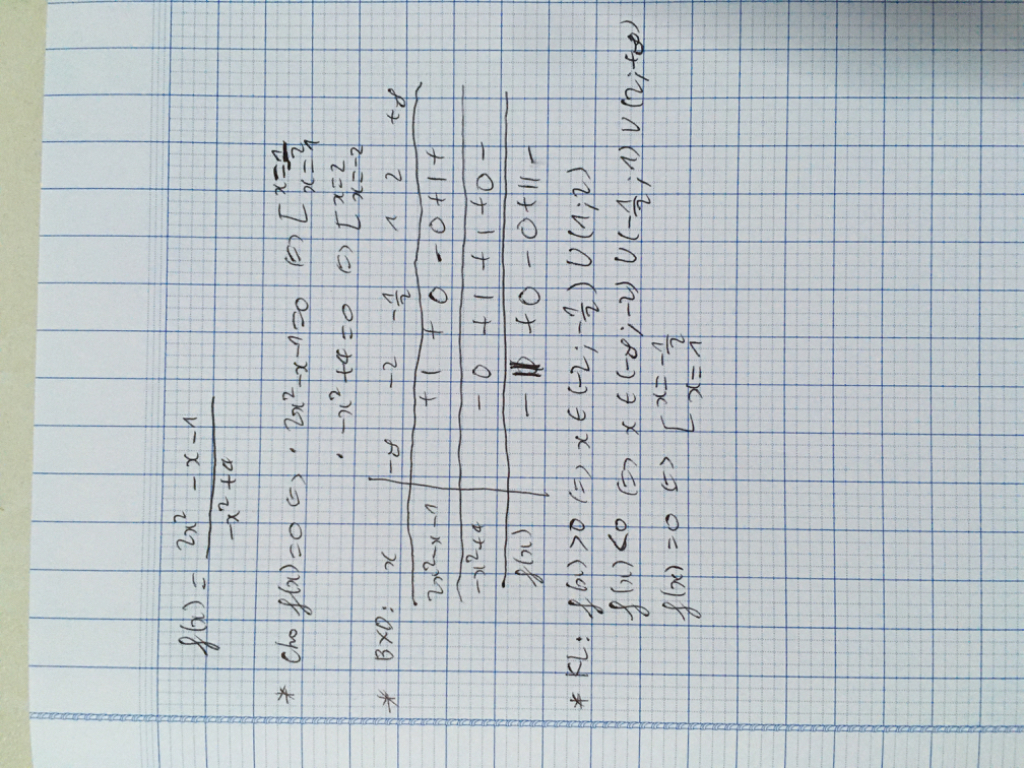 f(x) = 2x² - x - 1 / -x² + 4
* Cho f(x) = 0 (=) · 2x² - x - 1 = 0 (=) [ x = 1/2 x = 1
· -x² + 4 = 0 (=) [ x = 2 x = -2
* BXD: x -∞ -2 -1/2 1 2 +∞
2x² - x - 1 + | + 0 - 0 + | +
-x² + 4 - 0 + | + | + 0 -
f(x) - || + 0 - 0 + || -
* KL: f(x) > 0 (=) x ∈ (-2; -1/2) ∪ (1; 2)
f(x) < 0 (=) x ∈ (-∞; -2) ∪ (-1/2; 1) ∪ (2; +∞)
f(x) = 0 (=) [ x = -1/2 x = 1